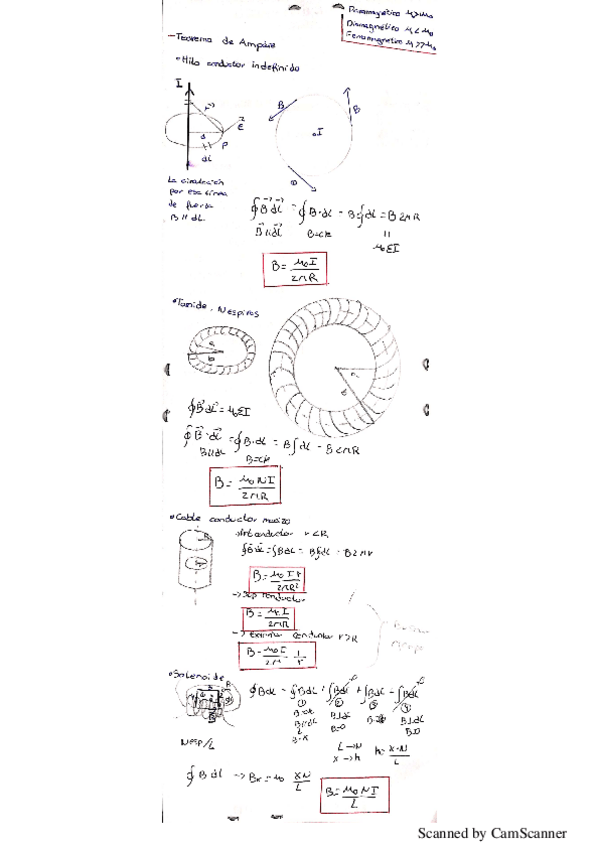 Paramagnético μ>μ₀
Diamagnético μ<μ₀
Ferromagnético μ>>μ₀
-Teorema de Ampère
*Hilo conductor indefinido
I
B
B
I
P
dL
La circulación
por esa línea
de fuerza
B // dL
∮B⃗ dL⃗ = ∮B·dL = B∮dL = B2πR
B⃗//dL⃗ B=cte ||
μ₀ΣI
B = μ₀I / 2πR
*Toroide. N espiras
a
b
a
b
∮B⃗ dL⃗ = μ₀ΣI
∮B⃗·dL⃗ = ∮B·dL = B∫dL = B2πR
B//dL B=cte
B = μ₀NI / 2πR
*Cable conductor macizo
→Int conductor r<R
∮B⃗dL⃗ = ∫BdL = B∮dL = B2πr
B = μ₀Ir / 2πR²
→Sup conductor
B = μ₀I / 2πR
→Exterior conductor r>R
B = μ₀I / 2π · 1/r
*Solenoide
∮BdL = ∮BdL + ∫BdL + ∫BdL + ∫BdL
① ② ③ ④
B=cte B⊥dL B⊥dL
B//dL B=0 B=0
N esp/L
L → N
x → n
n = x·N / L
∮B dL → Bx = μ₀ xN / L
B = μ₀NI / L
Scanned by CamScanner